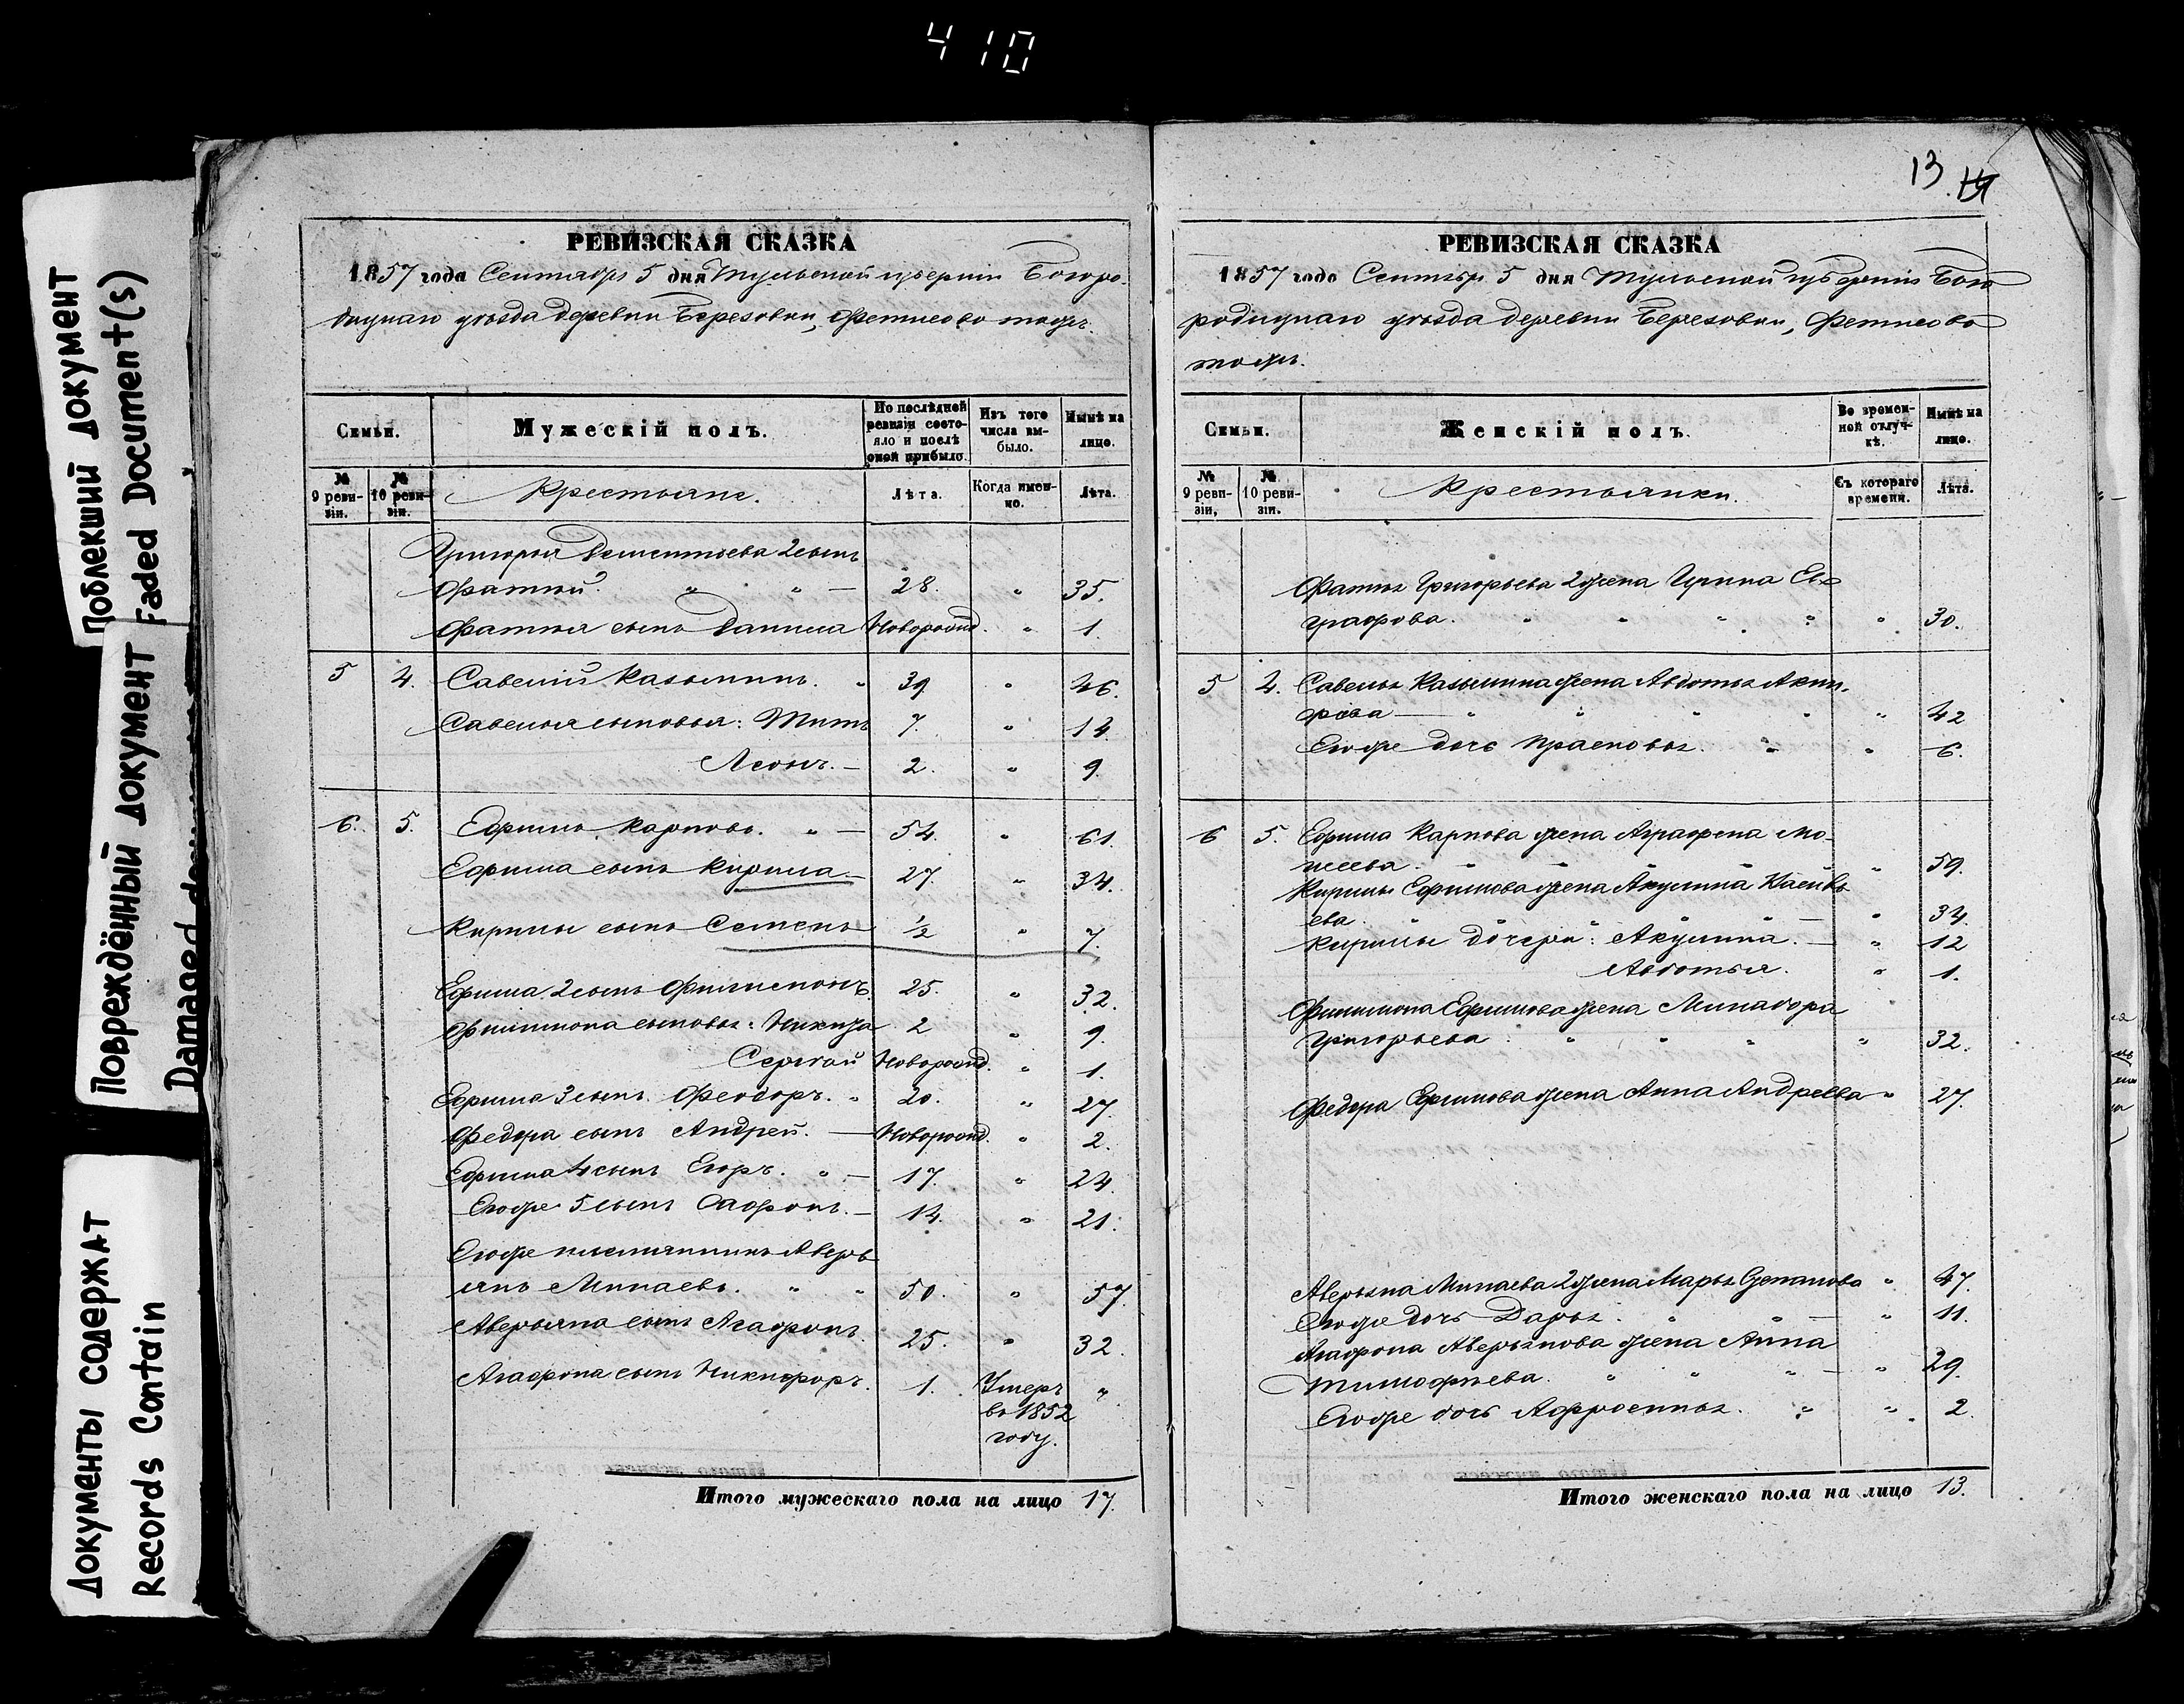 410
Поблекший документ
Faded Document(s)
Повреждённый документ
Damaged
Документы содержат
Records Contain
РЕВИЗСКАЯ СКАЗКА
1857 года Сентября 5 дня Тульской губернiи Богоро-
дицкаго уѣзда деревни Березовки, Фетисово тожъ.
Семьи.
Мужескій полъ.
По послѣдней ревизіи состояло и послѣ оной прибыло.
Изъ того числа выбыло.
Нынѣ на лицо.
№ 9 ревизіи.
№ 10 ревизіи.
Крестьяне.
Лѣта.
Когда именно.
Лѣта.
Григорья Дементьева 2 сынъ
Фатѣй. " " — 28. " 35.
Фатѣя сынъ Данила Новорожд. " 1.
5 4. Савелій Казьминъ. " 39 " 46.
Савелья сыновья: Титъ 7. " 14
Леонъ. — 2. " 9.
6. 5. Ефимъ Карповъ. " — 54. " 61.
Ефима сынъ Кирила. — 27. " 34.
Кирилы сынъ Семенъ ½ " 7.
Ефима 2 сынъ Филимонъ. 25. " 32.
Филимона сыновья: Никита 2 " 9.
Сергѣй Новорожд. " 1.
Ефима 3 сынъ Феодоръ. " 20. " 27.
Федора сынъ Андрей. — Новорожд. " 2.
Ефима 4 сынъ Егоръ. " — 17. " 24.
Егоже 5 сынъ Сафронъ. — 14. " 21.
Егоже племянникъ Аверь-
янъ Минаевъ. " " 50. " 57.
Аверьяна сынъ Агафонъ. 25. " 32.
Агафона сынъ Никифоръ. 1. Умеръ "
въ 1852
году.
Итого мужескаго пола на лицо 17.
13
РЕВИЗСКАЯ СКАЗКА
1857 года Сентябр. 5 дня Тульской губерніи Бого
родицкаго уѣзда деревни Березовки, Фетисово
тожъ.
Семьи.
Женскій полъ.
Во временной отлучкѣ.
Нынѣ на лицо.
№ 9 ревизіи.
№ 10 ревизіи.
Крестьянки.
Съ котораго времени.
Лѣта.
Фатѣя Григорьева 2 жена Ирина Ев-
графова. " " " " " 30.
5 4. Савелья Казьмина жена Авдотья Аки-
фова — " " " " " 42
Егоже дочь Прасковья. " " 6.
6 5. Ефима Карпова жена Аграфена Мо-
исеева. " " " " 59.
Кирилы Ефимова жена Акулина
ева. " " " — " 34.
Кирилы дочери: Акулина. — " 12
Авдотья. " 1.
Филимона Ефимова жена Минадора
Григорьева. " " " " 32.
Федора Ефимова жена Анна Андреева " 27.
Аверьяна Минаева 2 жена Марья Степанова " 47.
Егоже дочь Дарья. " " — " 11.
Агафона Аверьянова жена Анна
Тимофѣева. " " " — " 29.
Егоже дочь Афросинья. " " 2.
Итого женскаго пола на лицо 13.